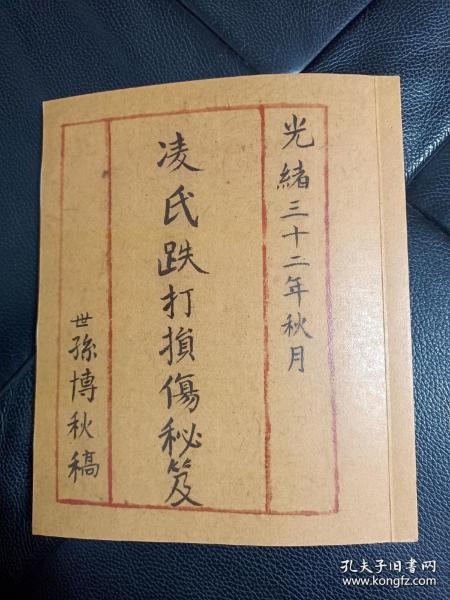 光緒三十二年秋月
凌氏跌打損傷秘笈
世孫博秋稿
孔夫子旧书网
www.kongfz.com